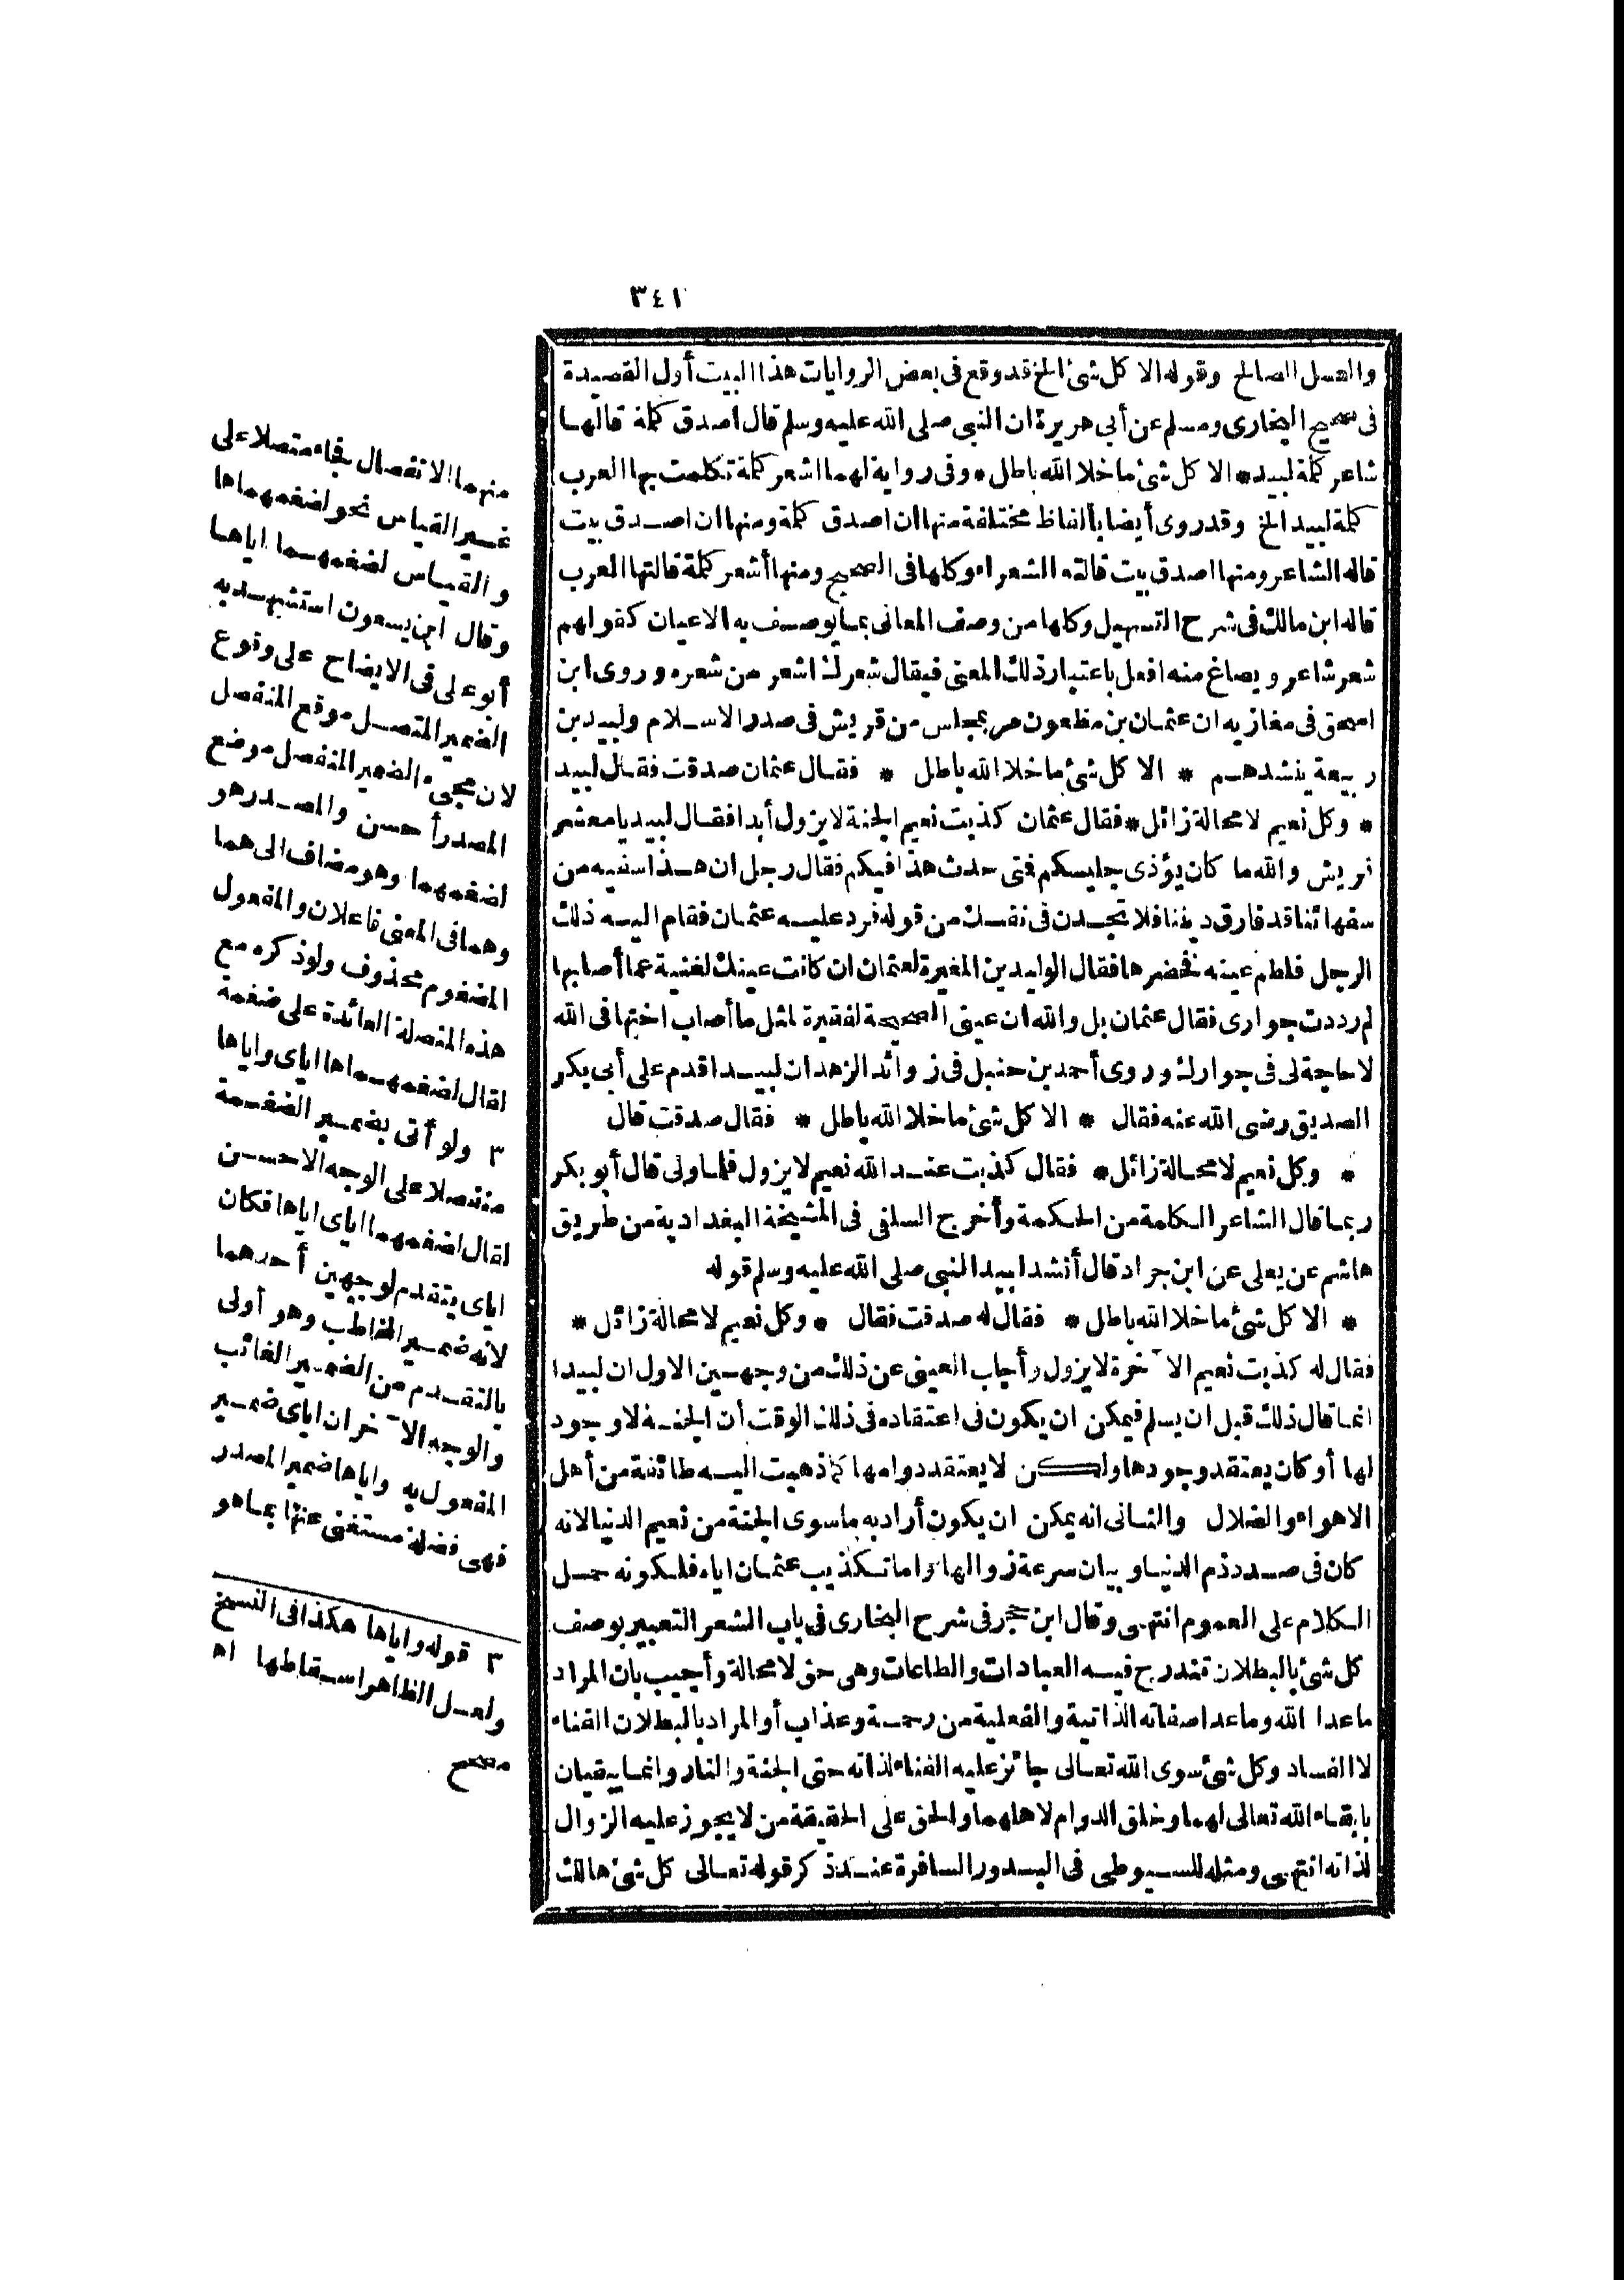 ٣٤١
والعمل الصالح وقوله الا كل شئ الخ قد وقع فى بعض الروايات هذا البيت أول القصيدة
فى صحيح البخارى ومسلم عن أبى هريرة ان النبى صلى الله عليه وسلم قال اصدق كلمة قالها
شاعر كلمة لبيد * الا كل شئ ما خلا الله باطل * وفى رواية لهما اشعر كلمة تكلمت بها العرب
كلمة لبيد الخ وقد روى أيضا بألفاظ مختلفة منها ان اصدق كلمة ومنها ان اصدق بيت
قاله الشاعر ومنها اصدق بيت قالته الشعراء وكلها فى الصحيح ومنها أشعر كلمة قالتها العرب
قاله ابن مالك فى شرح التسهيل وكلها من وصف المعانى بما يوصف به الاعيان كقولهم
شعر شاعر ويصاغ منه افعل باعتبار ذلك المعنى فيقال شعرك اشعر من شعره وروى ابن
اسحق فى مغازيه ان عثمان بن مظعون مر بمجلس من قريش فى صدر الاسلام ولبيد بن
ربيعة ينشدهم * الا كل شئ ما خلا الله باطل * فقال عثمان صدقت فقال لبيد
* وكل نعيم لا محالة زائل * فقال عثمان كذبت نعيم الجنة لا يزول أبدا فقال لبيد يا معشر
قريش والله ما كان يؤذى جليسكم فمتى حدث هذا فيكم فقال رجل ان هذا سفيه من
سفهائنا قد فارق ديننا فلا تجدن فى نفسك من قوله فرد عليه عثمان فقام اليه ذلك
الرجل فلطم عينه فخضرها فقال الوليد بن المغيرة لعثمان ان كانت عينك لغنية عما أصابها
لم رددت جوارى فقال عثمان بل والله ان عينى الصحيحة لفقيرة لمثل ما أصاب اختها فى الله
لا حاجة لى فى جوارك وروى أحمد بن حنبل فى زوائد الزهد ان لبيدا قدم على أبى بكر
الصديق رضى الله عنه فقال * الا كل شئ ما خلا الله باطل * فقال صدقت قال
* وكل نعيم لا محالة زائل * فقال كذبت عند الله نعيم لا يزول فلما ولى قال أبو بكر
ربما قال الشاعر الكلمة من الحكمة وأخرج السلفى فى المشيخة البغدادية من طريق
هاشم عن يعلى عن ابن جراد قال أنشد لبيد النبى صلى الله عليه وسلم قوله
* الا كل شئ ما خلا الله باطل * فقال له صدقت فقال * وكل نعيم لا محالة زائل *
فقال له كذبت نعيم الآخرة لا يزول وأجاب العينى عن ذلك من وجهين الاول ان لبيدا
انما قال ذلك قبل ان يسلم فيمكن ان يكون فى اعتقاده فى ذلك الوقت أن الجنة لا وجود
لها أو كان يعتقد وجودها ولكن لا يعتقد دوامها كما ذهبت اليه طائفة من أهل
الاهواء والضلال والثانى انه يمكن ان يكون أراد به ما سوى الجنة من نعيم الدنيا لانه
كان فى صدد ذم الدنيا وبيان سرعة زوالها واما تكذيب عثمان اياه فلكونه حمل
الكلام على العموم انتهى وقال ابن حجر فى شرح البخارى فى باب الشعر التعبير بوصف
كل شئ بالبطلان تندرج فيه العبادات والطاعات وهى حق لا محالة وأجيب بان المراد
ما عدا الله وما عدا صفاته الذاتية والفعلية من رحمة وعذاب أو المراد بالبطلان الفناء
لا الفساد وكل شئ سوى الله تعالى جائز عليه الفناء لذاته حتى الجنة والنار وانما يبقيان
بابقاء الله تعالى لهما وخلق الدوام لاهلهما والحق على الحقيقة من لا يجوز عليه الزوال
لذاته انتهى ومثله للسيوطى فى البدور السافرة عند ذكر قوله تعالى كل شئ هالك
منهما الانفصال فجاء متصلا على
غير القياس نحو لضغمهماها
والقياس لضغمهما اياها
وقال ابن يسعون استشهد به
أبو على فى الايضاح على وقوع
الضمير المتصل موقع المنفصل
لان مجىء الضمير المنفصل موضع
المصدر أحسن والمصدر هو
لضغمهما وهو مضاف الى هما
وهما فى المعنى فاعلان والمفعول
المضغوم محذوف ولو ذكره مع
هذه المتصلة العائدة على ضغمة
لقال لضغمهماها اياى واياها
٣ ولو أتى بضمير الضغمة
منفصلا على الوجه الاحسن
لقال لضغمهما اياى اياها فكان
اياى يتقدم لوجهين أحدهما
لانه ضمير المخاطب وهو أولى
بالتقدم من الضمير الغائب
والوجه الآخر ان اياى ضمير
المفعول به واياها ضمير المصدر
فهى فضلة مستغنى عنها بما هو
٣ قوله واياها هكذا فى النسخ
ولعل الظاهر اسقاطها اه
مصحح